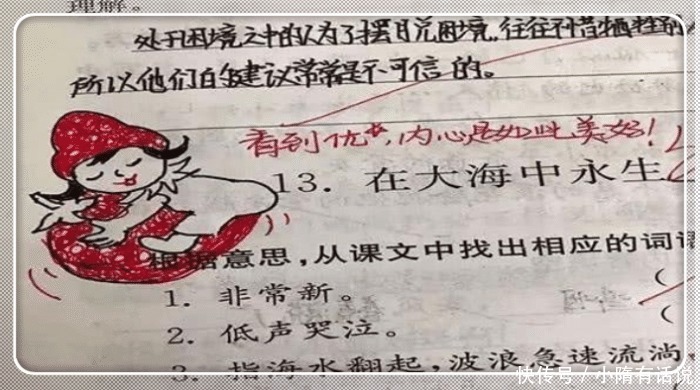 理解。
处于困境之中的人为了摆脱困境,往往不惜牺牲别
所以他们的建议常常是不可信的。
看到优*,内心是如此美好!
13. 在大海中永生
根据意思,从课文中找出相应的词语
1. 非常新。 (
2. 低声哭泣。 (
3. 指海水翻起,波浪急速流淌。
快传号/小隋有话说